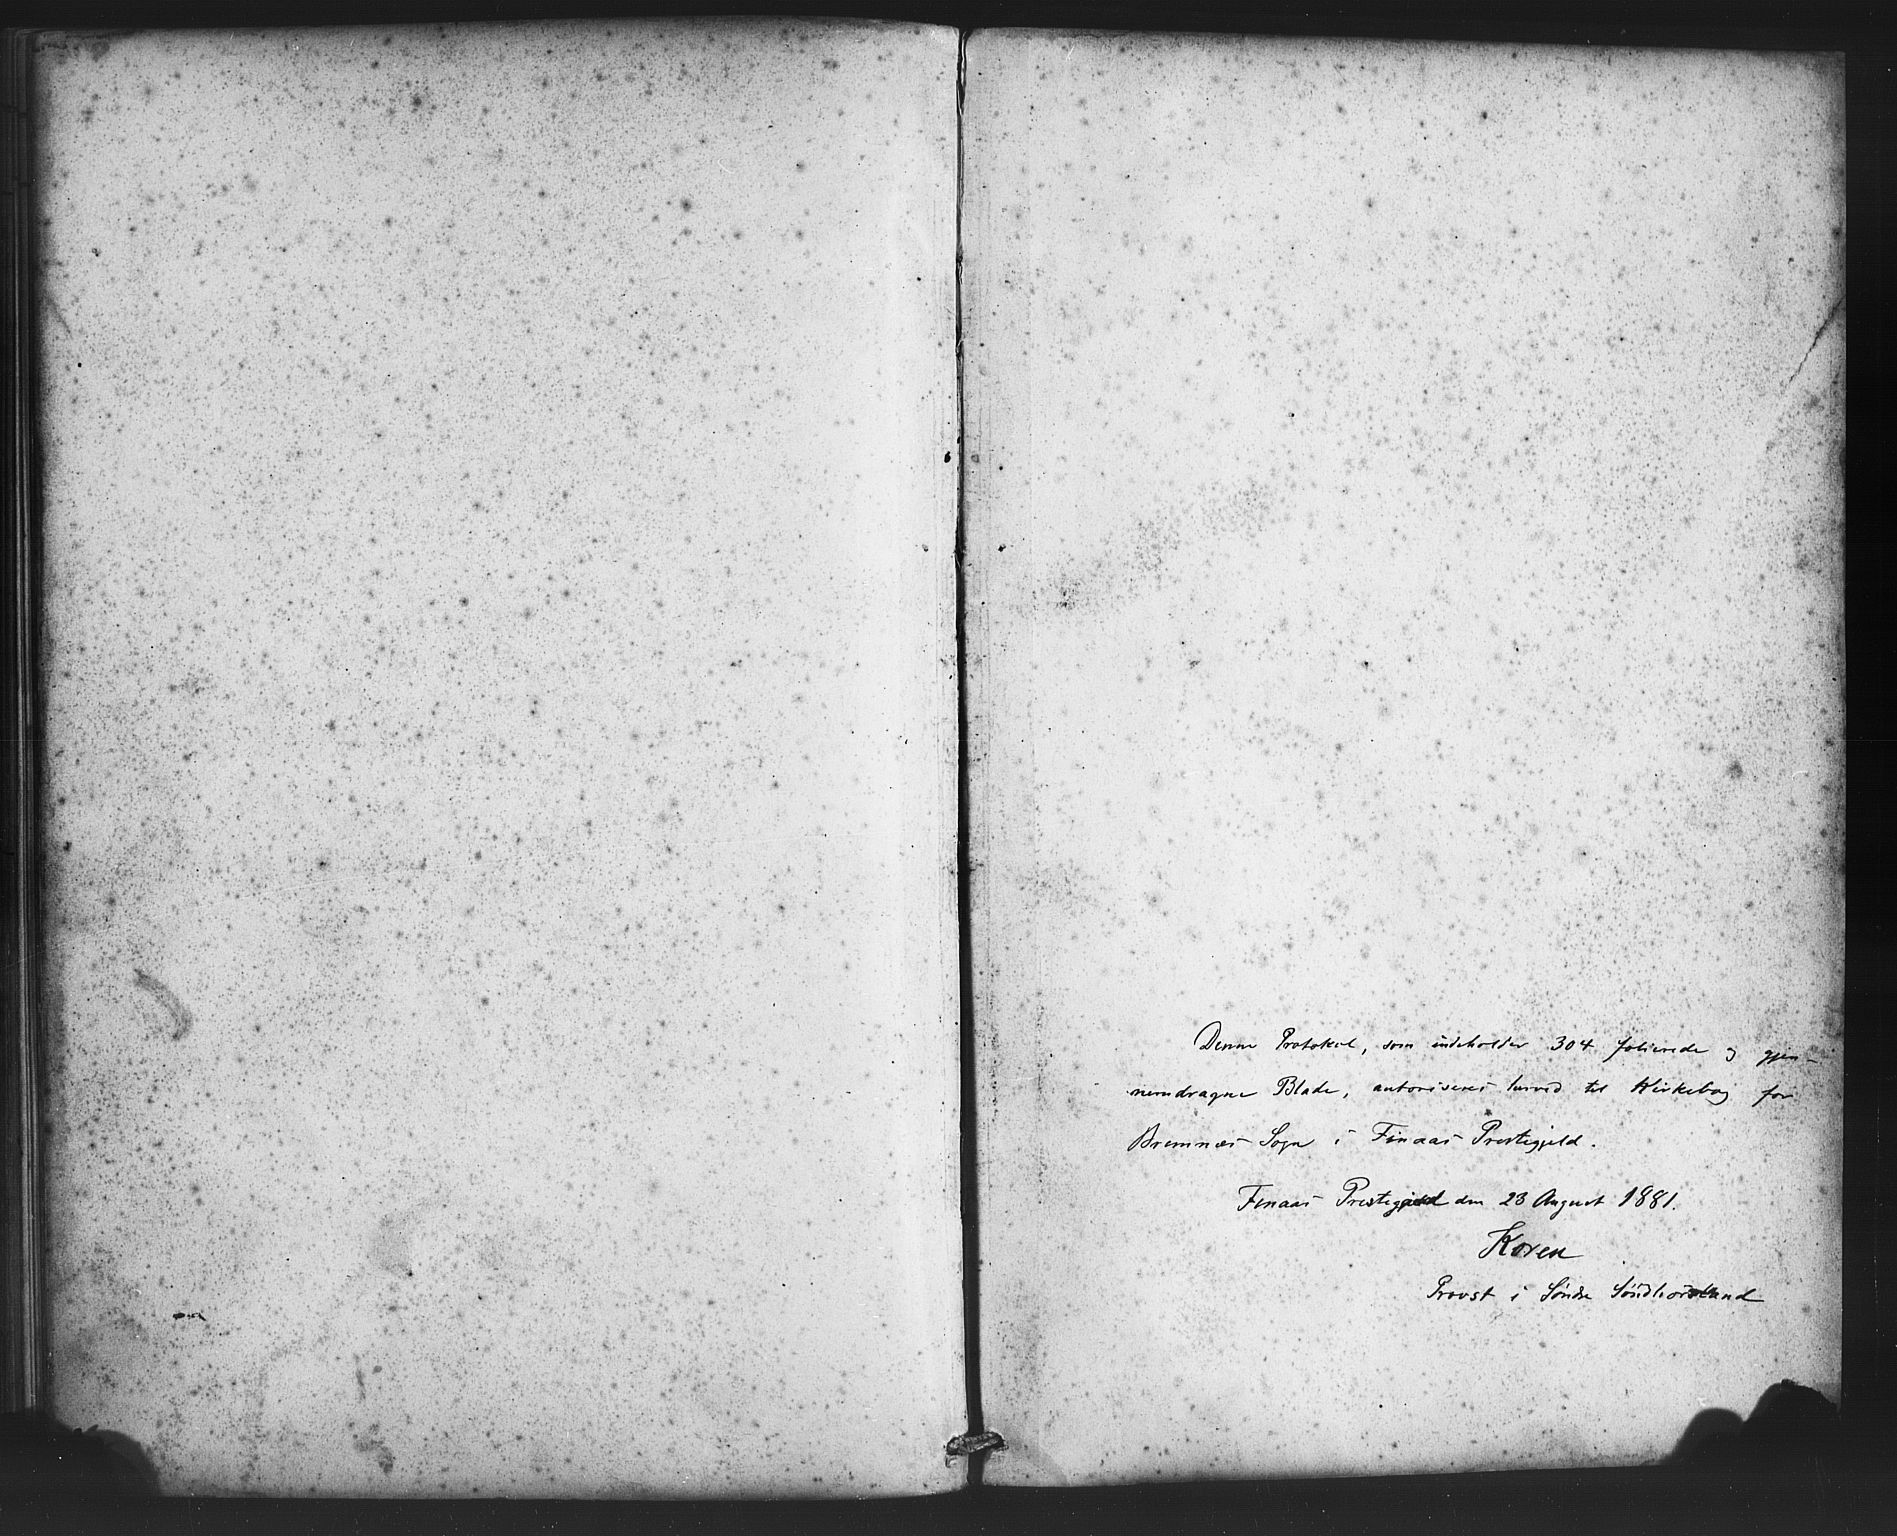 Denne Protokol, som indeholder 304 folierede og gjen-
nemdragne Blade, autoriseres herved til Kirkebog for
Bremnæs Sogn i Finaas Prestegjeld.
Finaas Prestegjeld den 23 August 1881.
Koren
Provst i Søndre Søndhordland